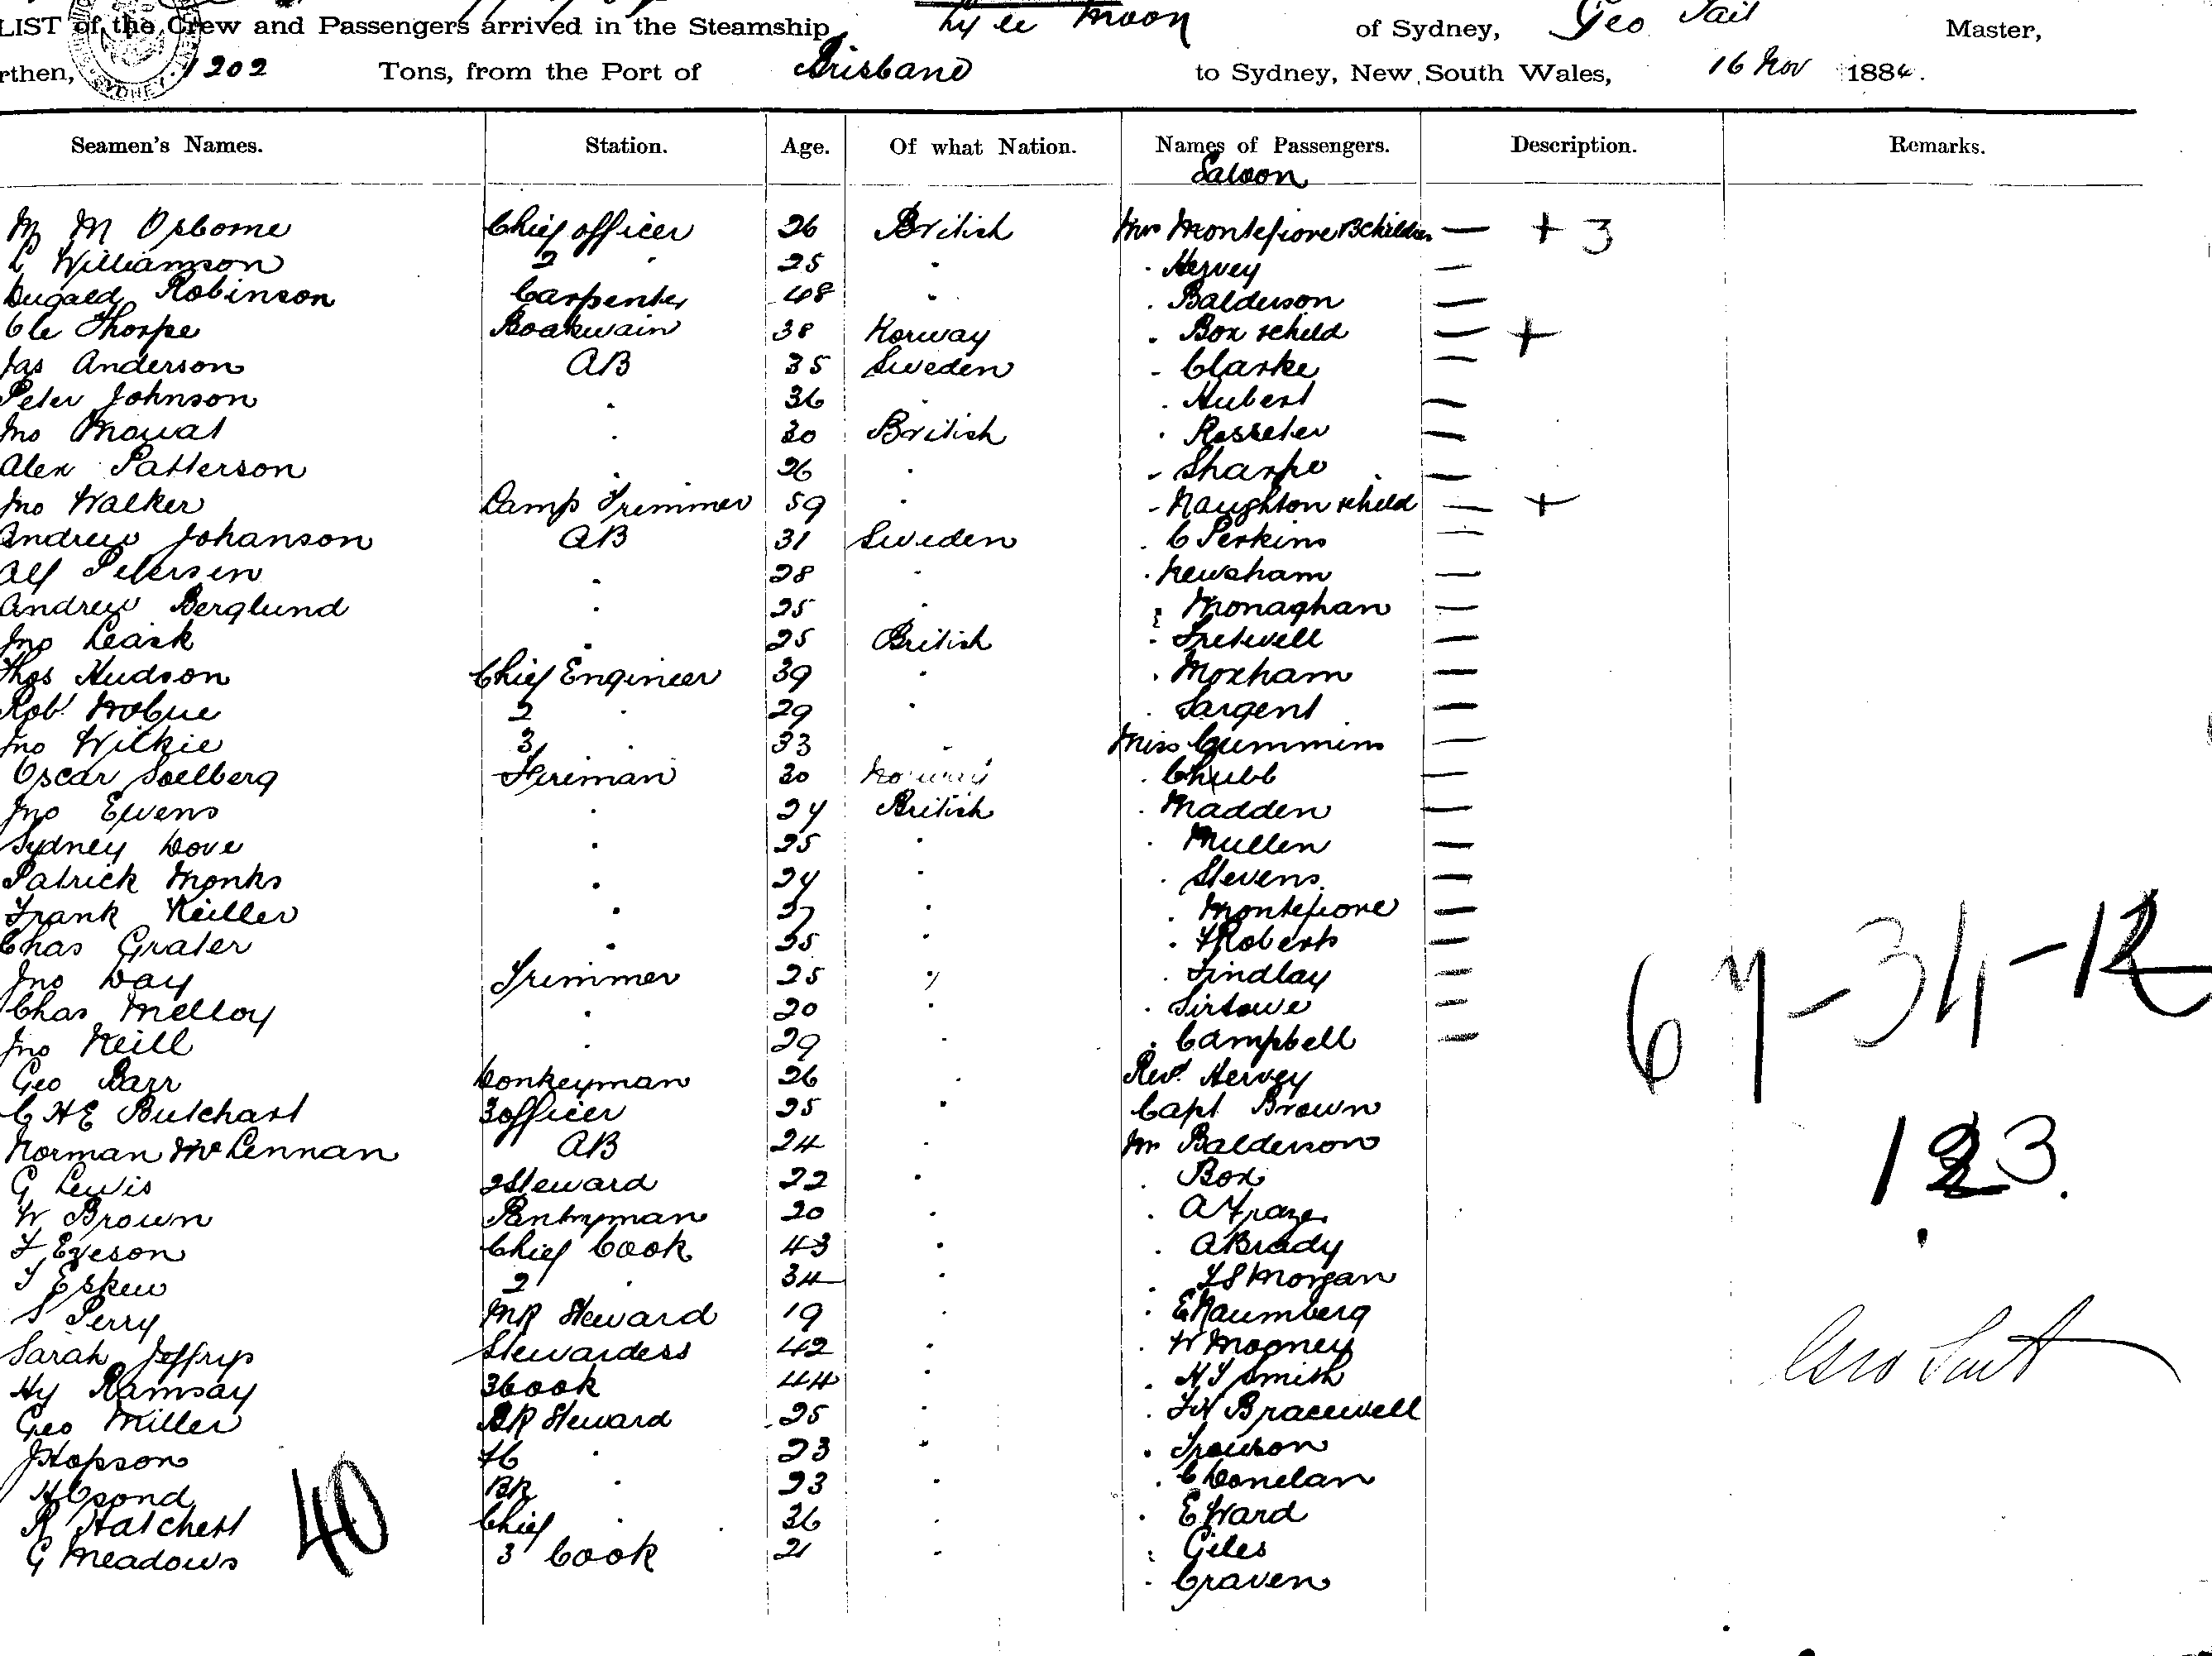 LIST of the Crew and Passengers arrived in the Steamship Ly ee Moon of Sydney, Geo Tait Master,
rthen, 1202 Tons, from the Port of Brisbane to Sydney, New South Wales, 16 Nov 188
Seamen's Names. Station. Age. Of what Nation. Names of Passengers. Description. Remarks.
Saloon
M M Osborne Chief officer 26 British Mrs Montefiore 3 children — + 3
L Williamson 2 " 25 " " Hervey —
Dugald Robinson Carpenter 48 " " Balderson —
Ole Thorpe Boatswain 38 Norway " Box & child — +
Jas Anderson AB 35 Sweden " Clarke —
Peter Johnson " 36 " " Hubert —
Jno Mouat " 30 British " Rosseter —
Alex Patterson " 26 " " Sharpe —
Jno Walker Lamp Trimmer 59 " " Naughton & child — +
Andrew Johanson AB 31 Sweden " C Perkins —
Alf Petersen " 28 " " Newsham —
Andrew Berglund " 25 " " Monaghan —
Jno Leask " 25 British " Fretwell —
Thos Hudson Chief Engineer 39 " " Moxham —
Robt 2 " 29 " " Sargent —
Jno Wilkie 3 " 33 " Miss Cummins —
Oscar Soelberg Fireman 30 Norway " Chubb —
Jno Evens " 24 British " Madden —
Sydney Dove " 25 " " Mullen —
Patrick Monks " 24 " " Stevens —
Frank Keiller " 27 " " Montefiore —
Chas Grater " 25 " " F Roberts —
Jno Day Trimmer 25 " " Findlay —
Chas Melloy " 20 " " —
Jno Neill " 29 " " Campbell —
67-34-12
Geo Barr Donkeyman 26 " Revd. Hervey
C H E Butchart 3 officer 25 " Capt Brown
Norman McLennan AB 24 " Mr Balderson
123.
G Lewis 2 Steward 22 " " Box
W Brown Pantryman 20 " " A Frazer
F Eveson Chief Cook 43 " " A Brady
T Eskew 2 " 34 " " F S Morgan
S Perry MR Steward 19 " " E Naumberg
Sarah Jeffrys Stewardess 42 " " W Mooney
Hy Ramsay 3 Cook 44 " " H J Smith
Geo Tait
Geo Miller BR Steward 25 " " F W Bracewell
J Hopson " 23 " " Trewson
H Cpond BR " 23 " " C Donelan
R Hatchett Chief " 36 " " E Ward
40
G Meadows 3 Cook 21 " " Giles
" Craven